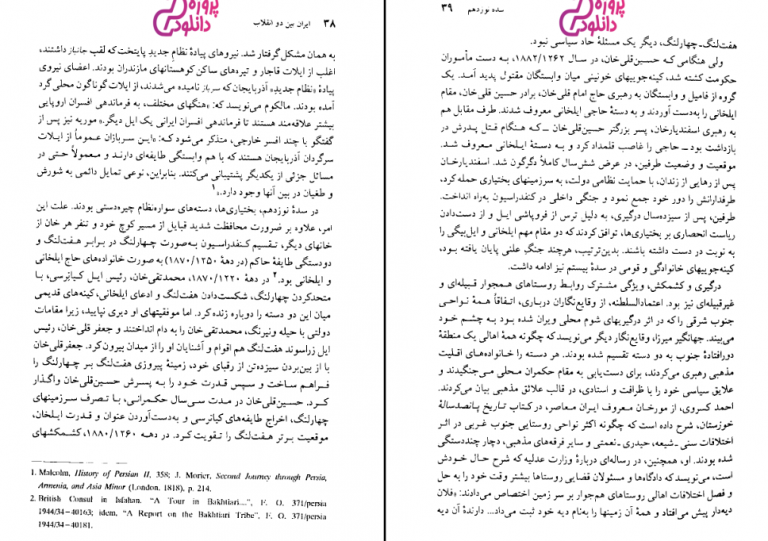 پروژه
دانلود
۳۸ ایران بین دو انقلاب
به همان مشکل گرفتار شد. نیروهای پیادهٔ نظام جدید پایتخت که لقب جانباز داشتند،
اغلب از ایلات قاجار و تیره‌های ساکن کوهستانهای مازندران بودند. اعضای نیروی
پیادهٔ «نظام جدید» آذربایجان که سرباز نامیده می‌شدند، از ایلات گوناگون محلی گرد
آمده بودند. مالکوم می‌نویسد که: «هنگهای مختلف، به فرماندهی افسران اروپایی
بیشتر علاقه‌مند هستند تا فرماندهی افسران ایرانی یک ایل دیگر.» موریه نیز پس از
گفتگو با چند افسر خارجی، متذکر می‌شود که: «این سربازان عموماً از ایلات
سرگردان آذربایجان هستند که با هم وابستگی طایفه‌ای دارند و معمولاً حتی در
مسائل جزئی از یکدیگر پشتیبانی می‌کنند. بنابراین، نوعی تمایل دائمی به شورش
و طغیان در بین آنها وجود دارد.»۱
در سدهٔ نوزدهم، بختیاری‌ها، دسته‌های سواره‌نظام چیره‌دستی بودند. علت این
امر، علاوه بر ضرورت محافظت شدید قبایل از مسیر کوچ خود و تنفر هر خان از
خانهای دیگر، تقسیم کنفدراسیون به‌صورت چهارلنگ در برابر هفت‌لنگ و
دودستگی طایفهٔ حاکم (در دههٔ ۱۲۵۰/۱۸۷۰) به صورت خانواده‌های حاج ایلخانی
و ایلخانی بود.۲ در دههٔ ۱۲۲۰/۱۸۷۰، محمدتقی‌خان، رئیس ایل کیانرسی، با
متحدکردن چهارلنگ، شکست‌دادن هفت‌لنگ و ادعای ایلخانی، کینه‌های قدیمی
میان این دو دسته را دوباره زنده کرد. اما موفقیتهای او دیری نپایید، زیرا مقامات
دولتی با حیله ونیرنگ، محمدتقی‌خان را به دام انداختند و جعفر قلی‌خان، رئیس
ایل زراسوند هفت‌لنگ هم اقوام و آشنایان او را از میدان بیرون‌کرد. جعفرقلی‌خان
با از بین‌بردن سیزده‌تن از رقبای خود، زمینهٔ پیروزی هفت‌لنگ بر چهارلنگ را
فراهم ساخت و سپس قدرت خود را به پسرش حسین‌قلی‌خان واگذار
کرد. حسین‌قلی‌خان در مدت سی‌سال حکمرانی، با تصرف سرزمینهای
چهارلنگ، اخراج طایفه‌های کیانرسی و به‌دست‌آوردن عنوان و قدرت ایلخان،
موقعیت برتر هفت‌لنگ را تقویت کرد. در دهه ۱۲۶۰/۱۸۸۰، کشمکشهای
1. Malcolm, History of Persian II, 358; J. Morier, Second Journey through Persia,
Armenia, and Asia Minor (London. 1818), p. 214.
2. British Consul in Isfahan, "A Tour in Bakhtiari...", F. O. 371/persia
1944/34-40163; idem, "A Report on the Bakhtiari Tribe", F. O. 371/persia
1944/34-40181.
پروژه
دانلود
سده نوزدهم ۳۹
هفت‌لنگ-چهارلنگ، دیگر یک مسئلهٔ حاد سیاسی نبود.
ولی هنگامی که حسین‌قلی‌خان، در سال ۱۲۶۲/۱۸۸۲، به دست مأموران
حکومت کشته شد، کینه‌جوییهای خونینی میان وابستگان مقتول پدید آمد. یک
گروه از فامیل و وابستگان به رهبری حاج امام قلی‌خان، برادر حسین قلی‌خان، مقام
ایلخانی را به‌دست آوردند و به دستهٔ حاجی ایلخانی معروف شدند. طرف مقابل هم
به رهبری اسفندیارخان، پسر بزرگتر حسین‌قلی‌خان -که هنگام قتل پدرش در
بازداشت بود- حاجی را غاصب قلمداد کرد و به دستهٔ ایلخانی معروف شد.
موقعیت و وضعیت طرفین، در عرض شش‌سال کاملاً دگرگون شد. اسفندیارخان
پس از رهایی از زندان، با حمایت نظامی دولت، به سرزمینهای بختیاری حمله کرد،
طرفدارانش را دور خود جمع نمود و جنگی داخلی در کنفدراسیون به‌راه انداخت.
طرفین، پس از سیزده‌سال درگیری، به دلیل ترس از فروپاشی ایل و از دست‌دادن
ریاست انحصاری بر بختیاری‌ها، توافق‌کردند که دو مقام مهم ایلخانی و ایل‌بیگی را
به نوبت در دست داشته باشند. بدین‌ترتیب، هرچند جنگ علنی پایان یافته بود،
کینه‌جوییهای خانوادگی و قومی در سدهٔ بیستم نیز ادامه داشت.
درگیری و کشمکش، ویژگی مشترک روابط روستاهای همجوار قبیله‌ای و
غیرقبیله‌ای نیز بود. اعتمادالسلطنه، از وقایع‌نگاران درباری، اتفاقاً همهٔ نواحی
جنوب شرقی را که در اثر درگیریهای شوم محلی ویران شده بود به چشم خود
می‌بیند. جهانگیر میرزا، وقایع‌نگار دیگر می‌نویسد که چگونه همهٔ اهالی یک منطقهٔ
دورافتادهٔ جنوب به دو دسته تقسیم شده بودند. هر دسته را خانواده‌های اقلیت
مذهبی رهبری می‌کردند، برای دست‌یابی به مقام حکمران محلی می‌جنگیدند و
علایق سیاسی خود را با ظرافت و استادی، در قالب علائق مذهبی بیان می‌کردند.
احمد کسروی، از مورخان معروف ایران معاصر، در کتاب تاریخ پانصدسالهٔ
خوزستان، شرح داده است که چگونه اکثر نواحی روستایی جنوب غربی در اثر
اختلافات سنی-شیعه، حیدری-نعمتی و سایر فرقه‌های مذهبی، دچار چنددستگی
شده بودند. او، همچنین، در رساله‌ای دربارهٔ وزارت عدلیه که شرح حال خودش
است، می‌نویسد که دادگاهها و مسئولان قضایی روستاها بیشتر وقت خود را به حل
و فصل اختلافات اهالی روستاهای هم‌جوار بر سر زمین اختصاص می‌دادند: «فلان
دیه‌دار پیش می‌افتاد و همهٔ آن زمینها را به‌نام دیه خود ثبت می‌داد... دارندهٔ آن دیه